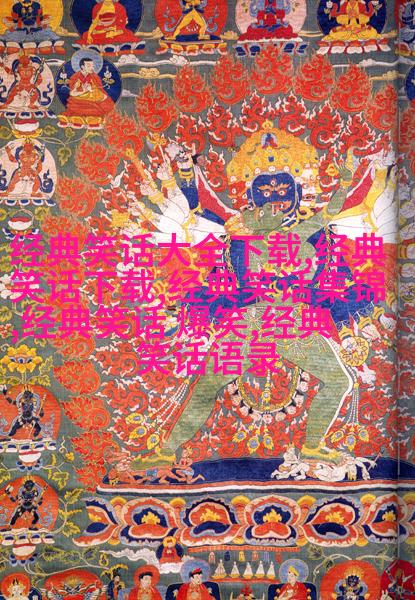 经典笑话大全下载,经典
笑话下载,经典笑话集锦
,经典笑话 爆笑,经典
笑话语录